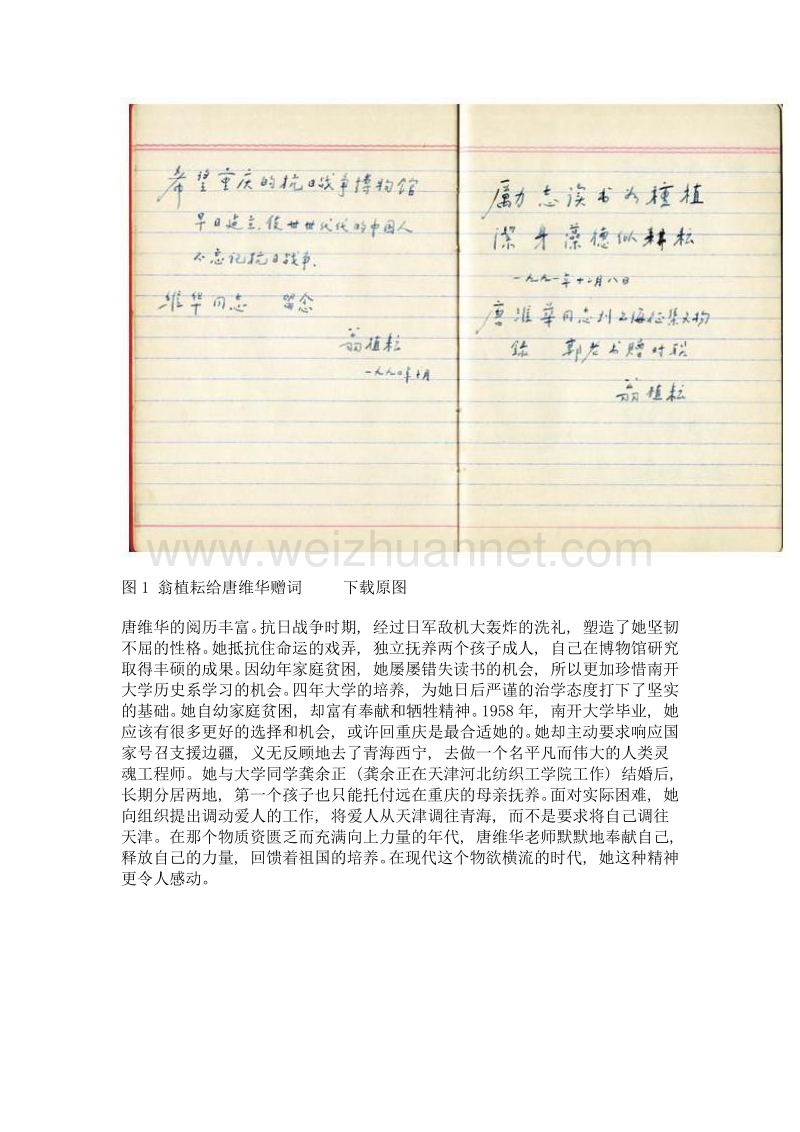 希望重庆的抗日战争博物馆
早日建立，使世世代代的中国人
不忘记抗日战争。
维华同志 留念
翁植耘
一九九〇年十月
励志读书为种植
潔身藻德似耕耘
一九九一年十二月八日
唐维华同志到上海征集文物
录 郭老书赠对联
翁植耘
www.weizhuannet.com
图1 翁植耘给唐维华赠词 下载原图
唐维华的阅历丰富。抗日战争时期, 经过日军敌机大轰炸的洗礼, 塑造了她坚韧
不屈的性格。她抵抗住命运的戏弄, 独立抚养两个孩子成人, 自己在博物馆研究
取得丰硕的成果。因幼年家庭贫困, 她屡屡错失读书的机会, 所以更加珍惜南开
大学历史系学习的机会。四年大学的培养, 为她日后严谨的治学态度打下了坚实
的基础。她自幼家庭贫困, 却富有奉献和牺牲精神。1958年, 南开大学毕业, 她
应该有很多更好的选择和机会, 或许回重庆是最合适她的。她却主动要求响应国
家号召支援边疆, 义无反顾地去了青海西宁, 去做一个名平凡而伟大的人类灵
魂工程师。她与大学同学龚余正 (龚余正在天津河北纺织工学院工作) 结婚后,
长期分居两地, 第一个孩子也只能托付远在重庆的母亲抚养。面对实际困难, 她
向组织提出调动爱人的工作, 将爱人从天津调往青海, 而不是要求将自己调往
天津。在那个物质资匮乏而充满向上力量的年代, 唐维华老师默默地奉献自己,
释放自己的力量, 回馈着祖国的培养。在现代这个物欲横流的时代, 她这种精神
更令人感动。